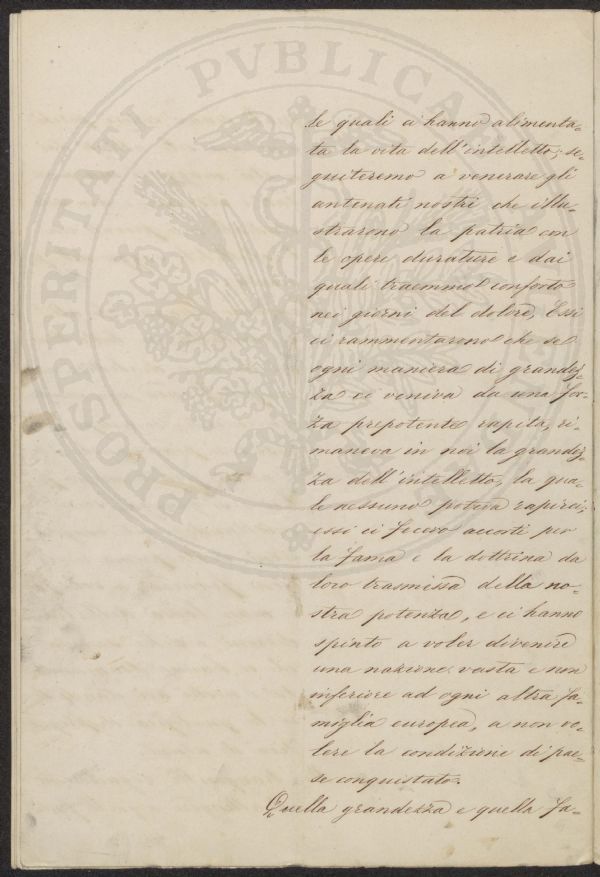 PROSPERITATI PVBLICAE
le quali ci hanno alimenta-
ta la vita dell'intelletto; se-
guiteremo a venerare gli
antenati nostri che illu-
strarono la patria con
le opere durature e dai
quali traemmo conforto
nei giorni del dolore. Essi
ci rammentarono che se
ogni maniera di grandez-
za ci veniva da una for-
za prepotente rapita, ri-
maneva in noi la grandez-
za dell'intelletto, la qua-
le nessuno poteva rapirci;
essi ci fecero accorti per
la fama e la dottrina da
loro trasmessa della no-
stra potenza, e ci hanno
spinto a voler divenire
una nazione vasta e non
inferiore ad ogni altra fa-
miglia europea, a non vo-
lere la condizione di pae-
se conquistato.
Quella grandezza e quella fa-